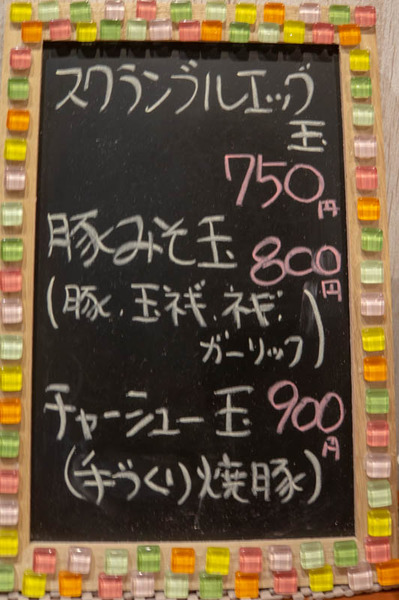 スクランブルエッグ
玉
750円
豚みそ玉 800円
(豚、玉ネギ、ネギ、
ガーリック)
チャーシュー玉 900円
(手づくり焼豚)